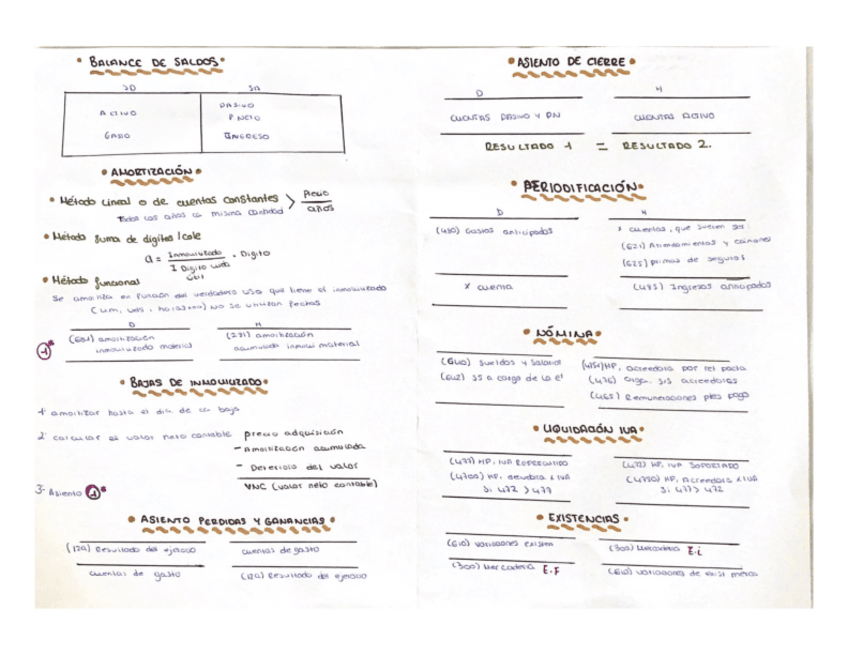 • BALANCE DE SALDOS •
SD SA
ACTIVO PASIVO
P. NETO
GASTO INGRESO
• AMORTIZACIÓN •
• Método Lineal o de cuentas constantes > Precio / años
Todos los años la misma cantidad
• Método suma de dígitos / cole
a = Inmovilizado / Σ Digito · Digito
• Método funcional
Se amortiza en función del verdadero uso que tiene el inmovilizado
(um, uds, horas) No se utilizan fechas
D H
1* (681) amortización (281) amortización
inmovilizado material acumulada inmovi material
• BAJAS DE INMOVILIZADO •
1- amortizar hasta el día de la baja
2- calcular el valor neto contable precio adquisición
- Amortización acumulada
- Deterioro del valor
VNC (valor neto contable)
3- Asiento 1*
• ASIENTO PERDIDAS Y GANANCIAS •
(129) Resultado del ejercicio cuentas de gasto
cuentas de gasto (129) Resultado del ejercicio
• ASIENTO DE CIERRE •
D H
CUENTAS PASIVO Y PN CUENTAS ACTIVO
RESULTADO 1 = RESULTADO 2.
• PERIODIFICACIÓN •
D H
(480) Gastos anticipados x cuentas, que suelen ser:
(621) Arrendamientos y cánones
(625) primas de seguros
x cuenta (485) Ingresos anticipados
• NÓMINA •
(640) Sueldos y Salarios (4751) HP, acreedora por ret pacta
(642) SS a cargo de la e! (476) Orga. S.S acreedores
(465) Remuneraciones ptes pago
• LIQUIDACIÓN IVA •
(477) HP, IVA REPERCUTIDO (472) HP, IVA SOPORTADO
(4700) HP, deudora x IVA (4750) HP, Acreedora x IVA
Si 472 > 477 Si 477 > 472
• EXISTENCIAS •
(610) Variaciones existen (300) Mercadería E.i
(300) Mercadería E.F (610) Variaciones de exist